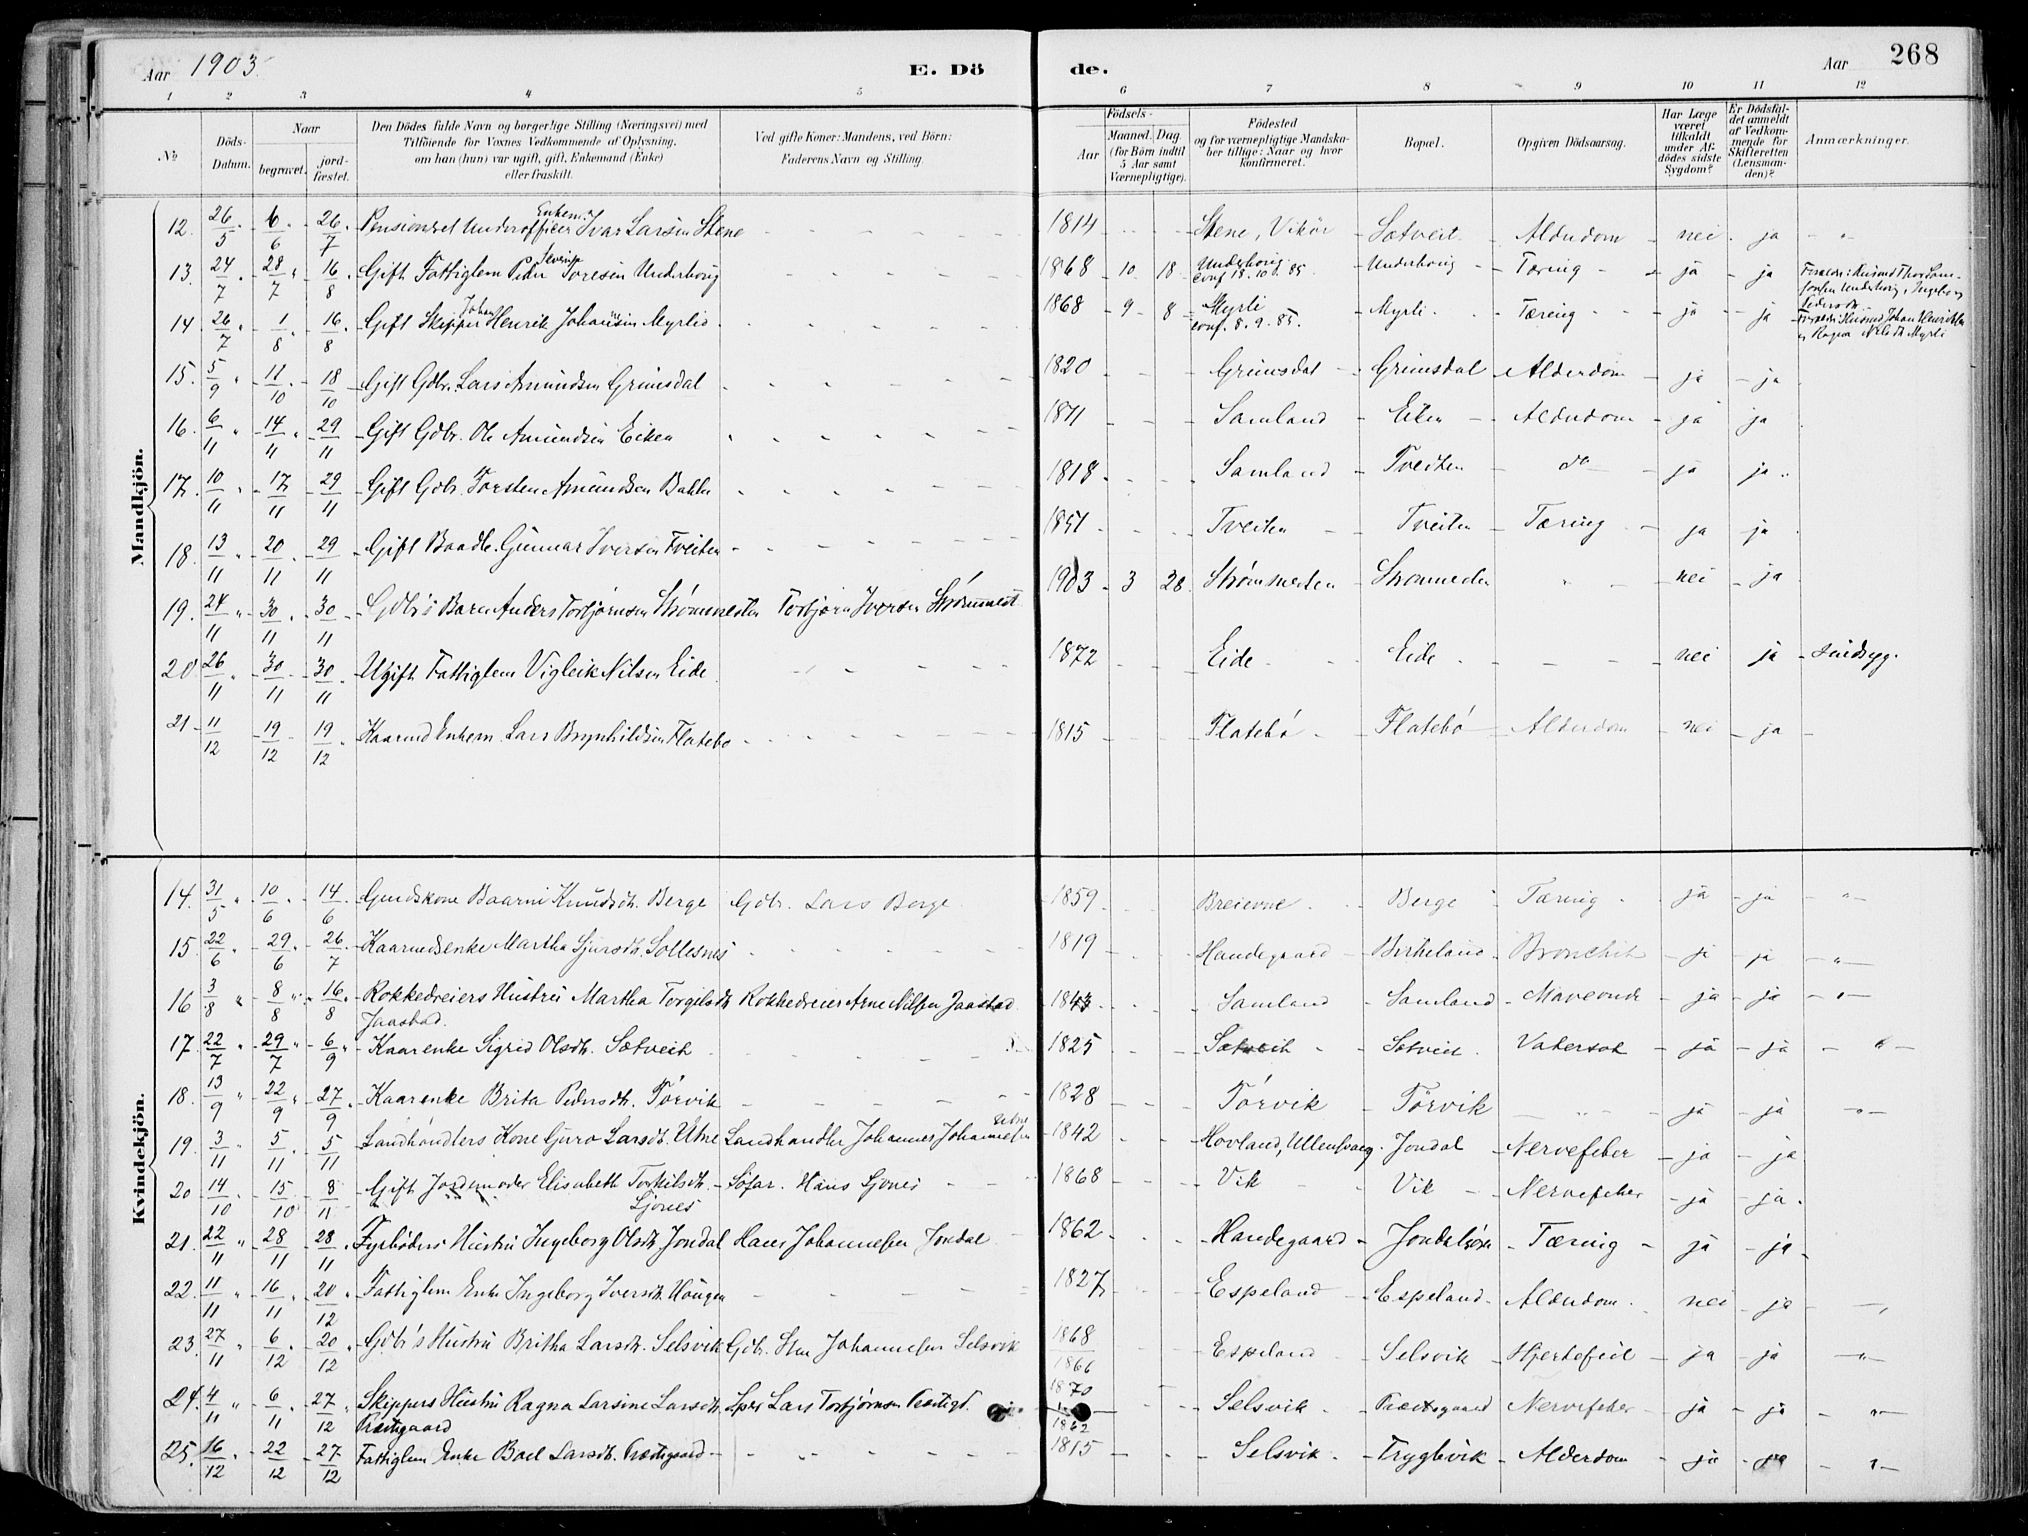 Aar 1903. E. Dö de. Aar 268
1 2 3 4 5 6 7 8 9 10 11 12
No Döds-Datum. Naar begravet. jord-fæstet. Den Dödes fulde Navn og borgerlige Stilling (Næringsvei) med Tilföiende for Voxnes Vedkommende af Oplysning, om han (hun) var ugift, gift, Enkemand (Enke) eller fraskilt. Ved gifte Koner: Mandens, ved Börn: Faderens Navn og Stilling. Födsels- Aar Maaned. Dag. (for Börn indtil 5 Aar samt Værnepligtige). Födested og for værnepligtige Mandskaber tillige: Naar og hvor konfirmeret. Bopæl. Opgiven Dödsaarsag. Har Læge været tilkaldt under Afdödes sidste Sygdom? Er Dödsfaldet anmeldt af Vedkommende for Skifteretten (Lensmanden)? Anmærkninger.
Mandkjön.
12. 26/5 6/6 26/7 Pensioneret Underofficer Enkem. Ivar Larsen Stene 1814 Stene, Vikör Sætveit Alderdom nei ja
13. 24/7 28/7 16/8 Gift Fattiglem Peder Toresen Underhoug 1868 10 18 Underhoug conf. 18.10.85 Underhoug Tæring ja ja
14 26/7 1/8 16/8 Gift Skipper Johan Henrik Johansen Myrlid 1868 9 8 Myrli conf. 8.9.85. Myrli Tæring ja ja
15. 5/9 11/10 18/10 Gift Gdbr. Lars Amundsen Grimsdal 1820 Grimsdal Grimsdal Alderdom ja ja
16. 6/11 14/11 29/11 Gift Gdbr. Ole Amundsen Eiken Samland Eiken Alderdom ja ja
17. 10/11 17/11 29/11 Gift Gdbr. Torsten Amundsen Bakke 1818 Samland Tveiten do ja ja
18. 13/11 20/11 29/11 Gift Baadb. Gunnar Iversen Tveiten 1851 Tveiten Tveiten Tæring ja ja
19. 24/11 30/11 30/11 Gdbr's Barn Anders Torbjørnsen Strømmesten Torbjørn Iversen 1903 3 28 nei ja
20 26/11 30/11 30/11 Ugift Fattiglem Vigleik Nilsen Eide 1872 Eide Eide nei ja sindsyg.
21 11/12 19/12 19/12 Kaarmd Enkem. Lars Brynhildsen Flatebø 1815 Flatebö Flatebö Alderdom nei ja
Kvindekjön.
14. 31/5 10/6 14/6 Gaardskone Baarni Knudsdt. Berge Gdbr. Lars Berge 1859 Breievne Berge Tæring ja ja
15 22/6 29/6 26/7 Kaarmdsenke Martha Sjursdt. Sollesnes 1819 Handegaard Birkeland Bronchit ja ja
16 3/8 8/8 16/8 Rokkedreiers Hustru Martha Torgilsdt. Rokkedreier Arne Nilsen Jaastad 1843 Samland Samland Maveonde ja ja
Jaastad.
17. 22/7 29/7 6/9 Kaarenke Sigrid Olsdt. Sætveit 1825 Sætveit Sætveit Vatersot ja ja
18. 13/9 22/9 27/9 Kaarenke Brita Pedersdt. Törvik 1828 Törvik Törvik ja ja
19. 3/11 5/11 5/11 Landhandlers Kone Guro Larsdt. Utne Landhandler Johannes Johannesen Utne 1842 Hovland, Ullensvang Jondal Nervefeber ja ja
20 14/10 15/10 8/11 Gift Jordemoder Elisabeth Torkilsdt. Söfar. Hans Sjones 1868 Vik Vik Nervefeber ja ja.
Sjones
21. 22/11 28/11 28/11 Fyrbøders Hustru Ingeborg Olsdt. Jondal Hans Johannesen Jondal 1862 Handegaard Jondalsøren Tæring ja ja
22. 11/11 16/11 20/12 Fattiglem Enke Ingeborg Iversdt. Haugen 1827 Espeland Espeland Alderdom nei ja
23. 27/11 6/12 20/12 Gdbr's Hustru Britha Larsdt. Selsvik Gdbr. Johannesen Selsvik 1868 1866 Espeland Selsvik Hjertefeil ja ja
24. 4/11 6/11 27/12 Skippers Hustru Ragna Larsine Larsdt. Lars Torbjørnsen Præstegd. 1870 1862 Selsvik Præstegaard Nervefeber ja ja
Præstegaard
25. 16/12 22/12 27/12 Fattiglem Enke Boel Larsdt. Præstegaard 1815 Selsvik Trygleivik Alderdom ja ja